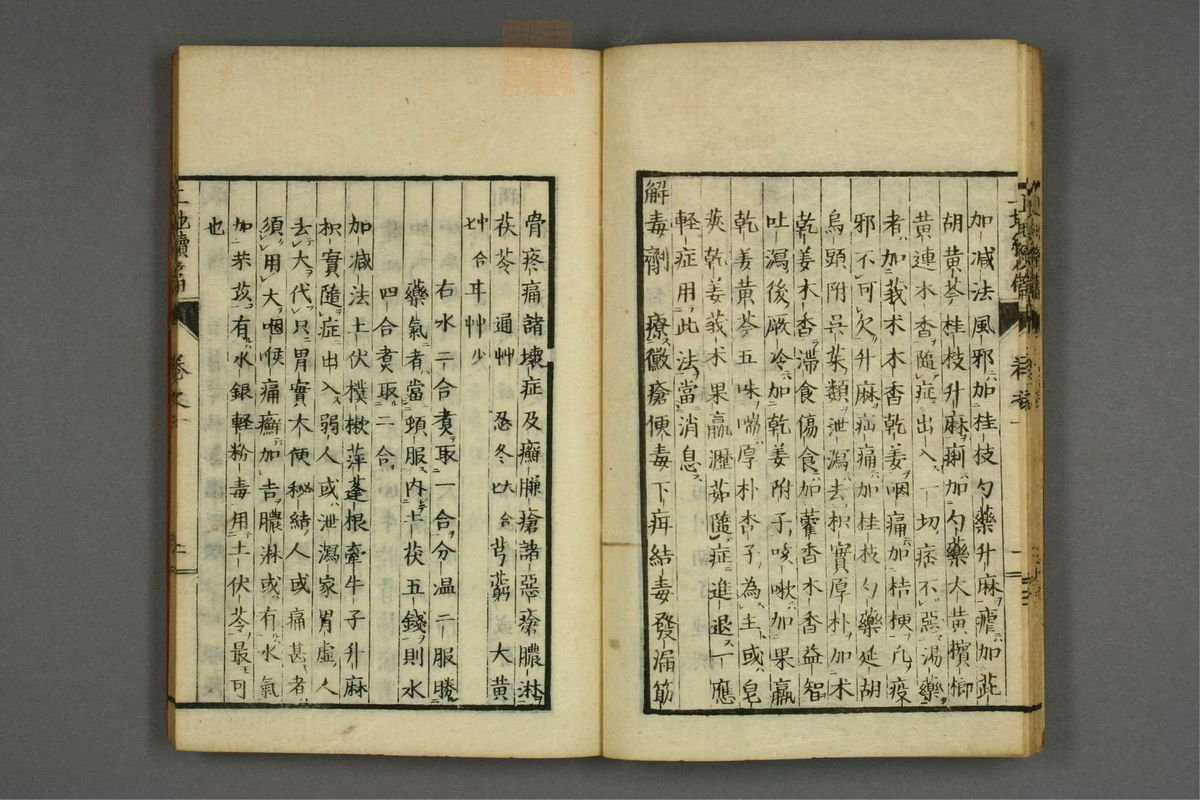 加減法風邪加桂枝勺藥升麻瘧加柴
胡黃芩桂枝升麻痢加勺藥大黃檳榔
黃連木香隨症出入一切痞不惡湯藥
者加莪朮木香乾姜咽痛加桔梗凢疫
邪不可欠升麻疝痛加桂枝勺藥延胡
烏頭附呉茱類泄瀉去枳實厚朴加朮
乾姜木香滯食傷食加藿香木香益智
吐瀉後厥冷加乾姜附子咳嗽加果蠃
乾姜黃芩五味喘厚朴杏子為主或皂
莢乾姜莪朮果蠃瀝茹隨症進退一應
軽症用此法當消息
解毒劑 療黴瘡便毒下疳結毒發漏筋
骨疼痛諸壞症及癬臁瘡諸惡瘡膿淋
茯苓 通艸 忍冬 大合 芎藭 大黃
合耳艸少
右水二合煑取一合分温二服勝
藥氣者當頓服内土茯五錢則水
四合煑取二合
加減法土伏樸樕萍蓬根牽牛子升麻
枳實隨症出入弱人或泄瀉家胃虛人
去大代只胃實大便秘結人或痛甚者
須用大咽喉痛癬加吉膿淋或有水氣
加茶苡有水銀軽粉毒用土伏苓最可
也